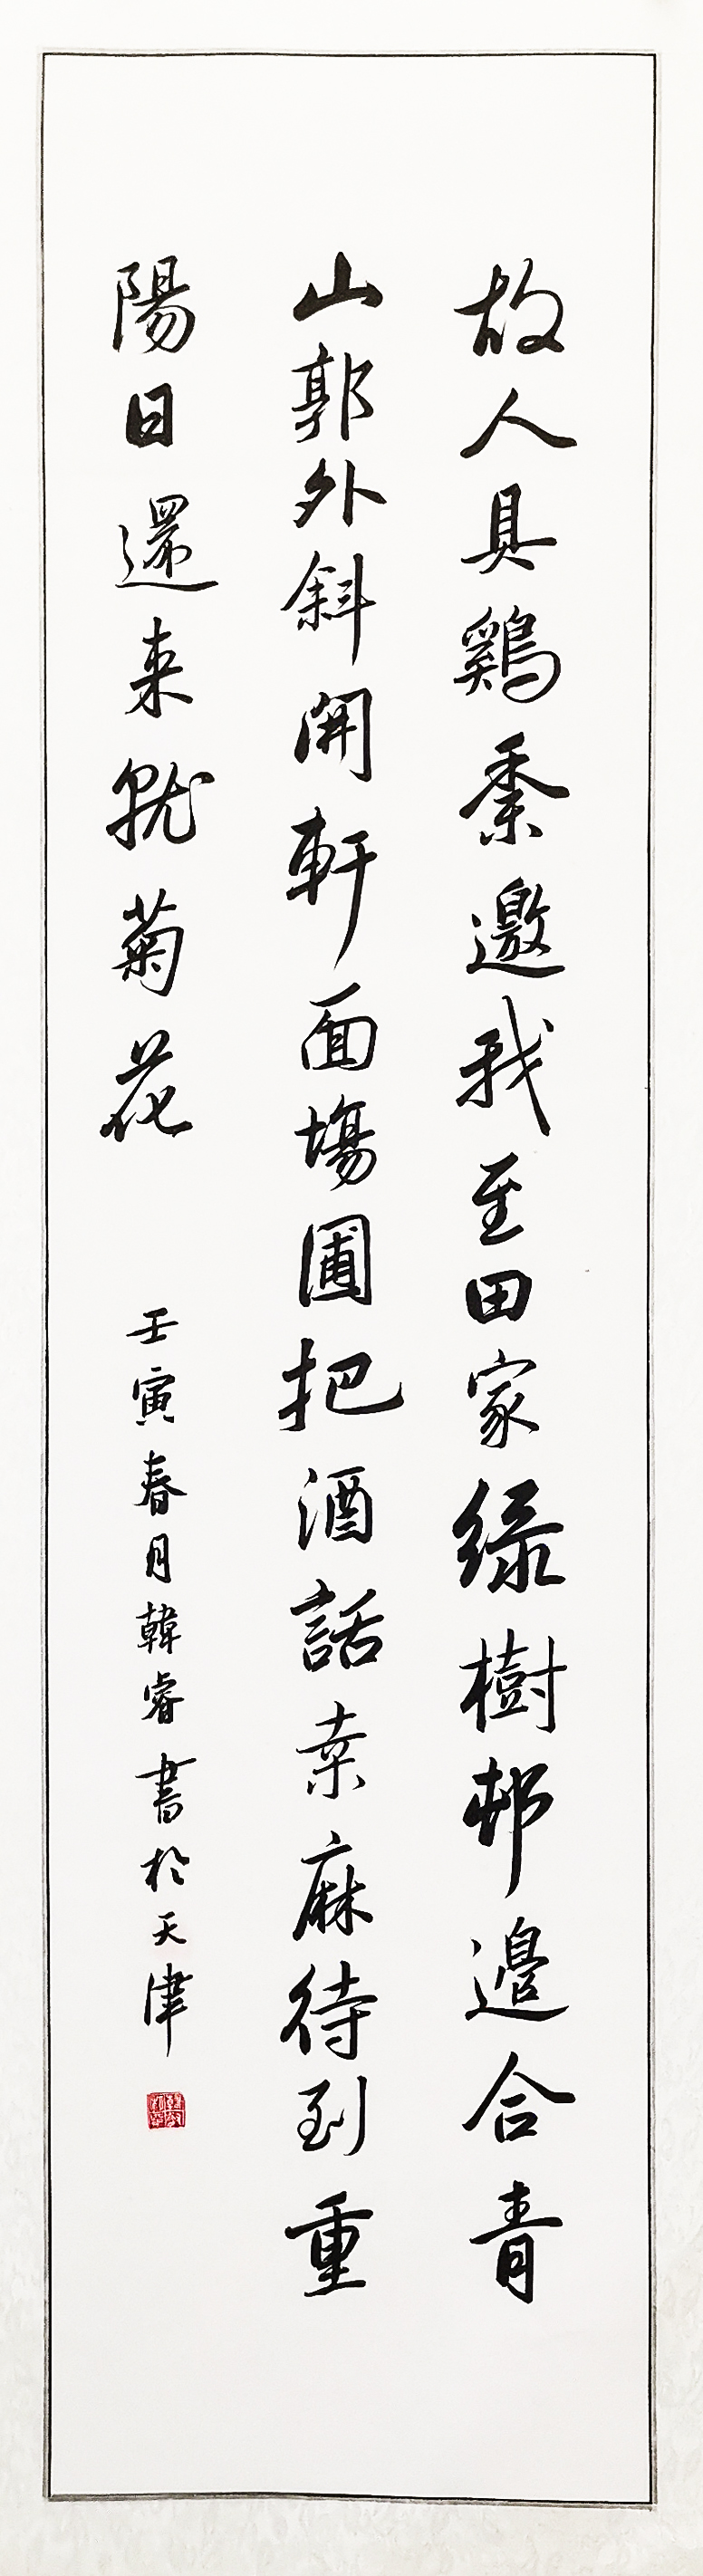 故人具鷄黍邀我至田家綠樹邨邊合青
山郭外斜開軒面場圃把酒話桒麻待到重
陽日還来就菊花
壬寅春月韓睿書於天津